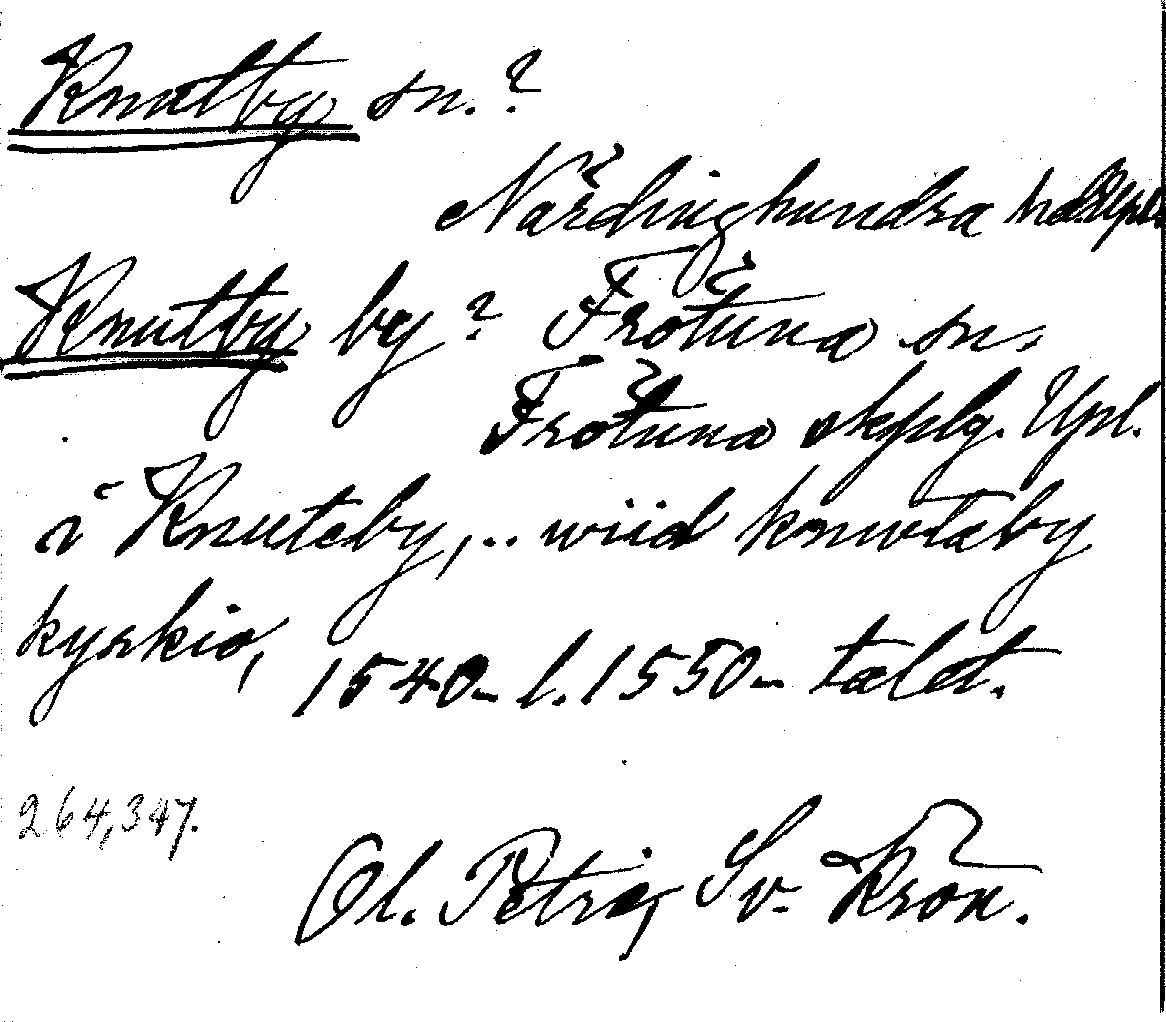 Knutby sn.?
Närdinghundra hd. Upl.
Knutby by? Frötuna sn.
Frötuna skplg. Upl.
i Knuteby, .. wiid konwtaby
kyrkio,
1540- l. 1550-talet.
264,347.
Ol. Petri, Sv. Krön.